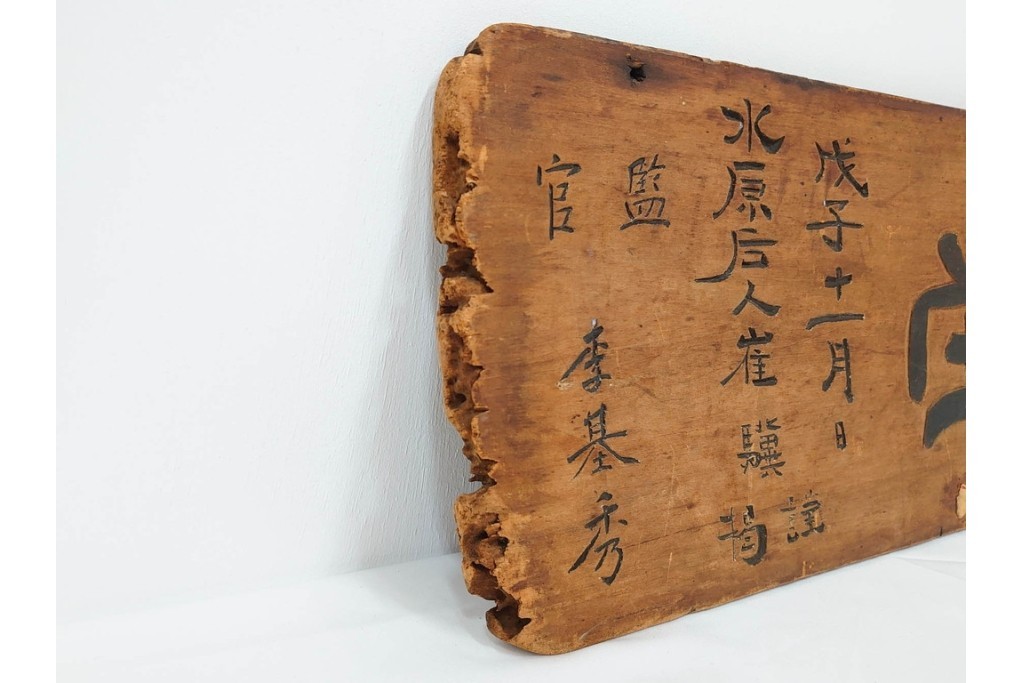 戊子十一月 日
水原后人崔驥 謹揭
監官 李基秀